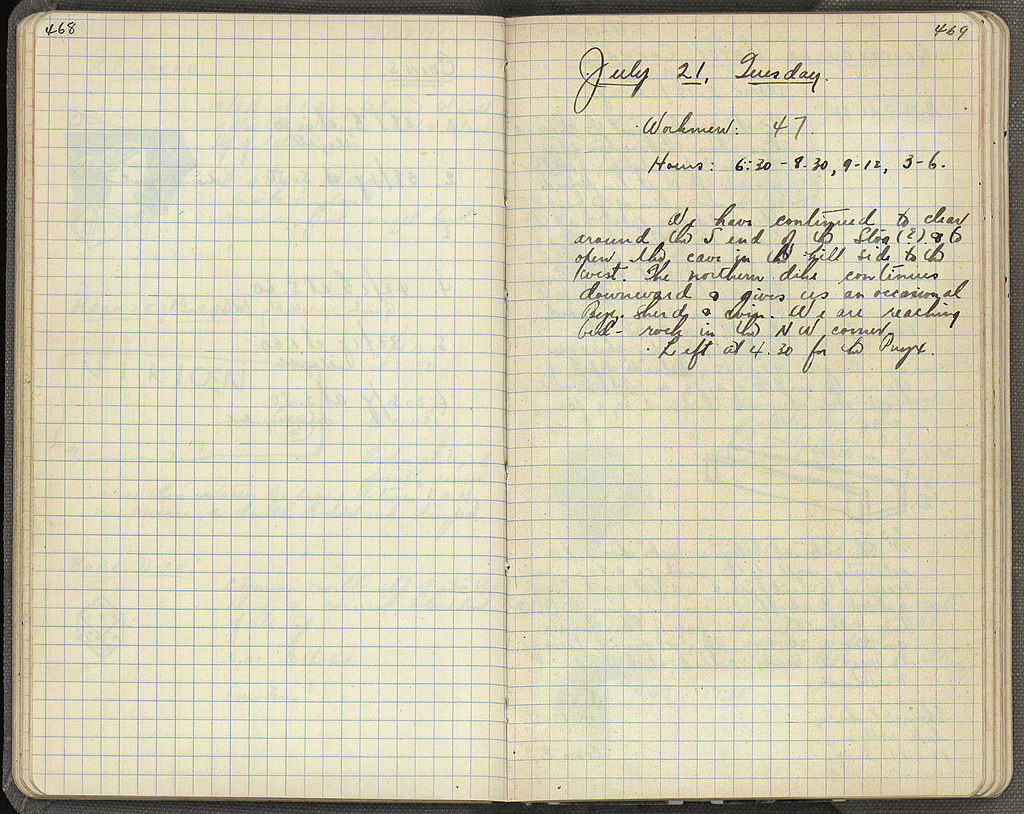 468
469
July 21, Tuesday.
Workmen: 47.
Hours: 6:30-8.30, 9-12, 3-6.
We have continued to clear
around the S end of the Stoa (?) & to
open the cave in the hill side to the
West. The northern dike continues
downward & gives us an occasional
Byz. sherd & coin. We are reaching
bed-rock in the NW corner.
Left at 4.30 for the Pnyx.